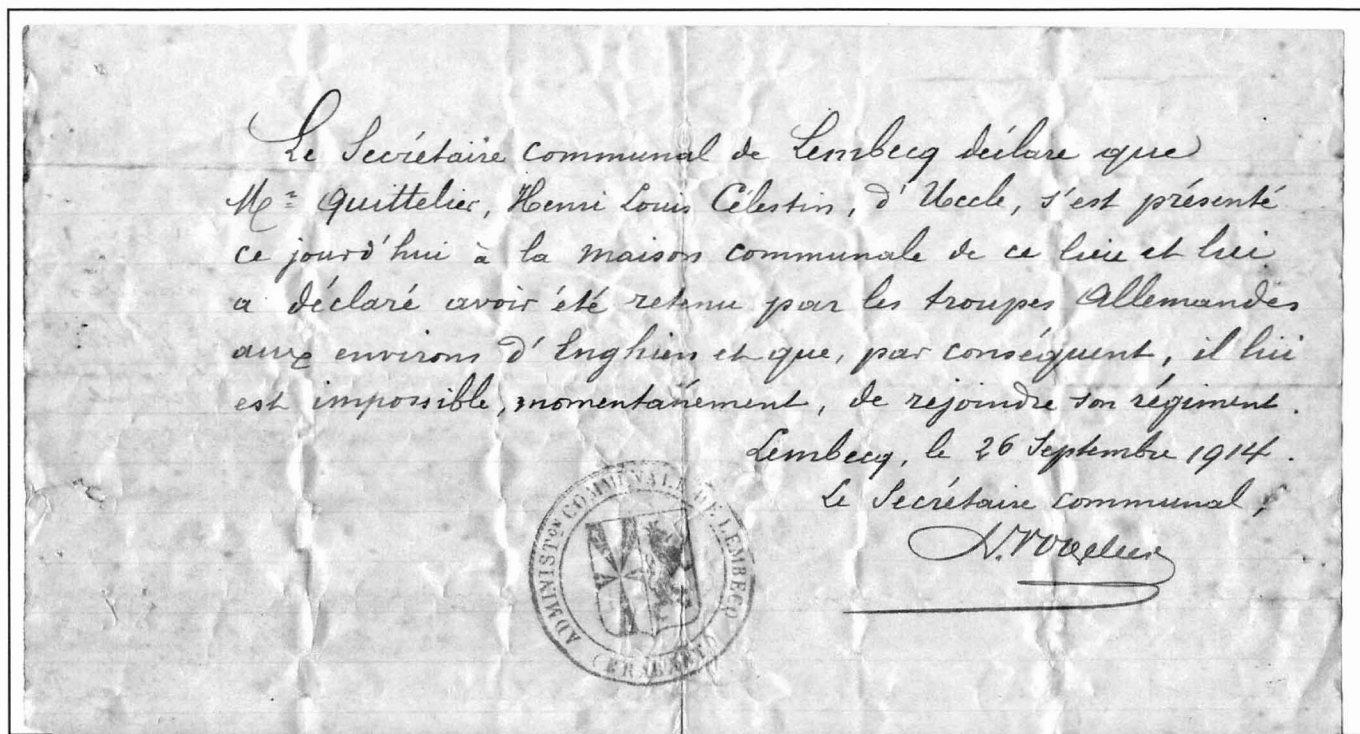 Le Secrétaire communal de Lembecq déclare que
Mr Quittelier, Henri Louis Célestin, d'Uccle, s'est présenté
ce jourd'hui à la maison communale de ce lieu et lui
a déclaré avoir été retenu par les troupes Allemandes
aux environs d'Enghien et que, par conséquent, il lui
est impossible, momentanément, de rejoindre son régiment.
Lembecq, le 26 Septembre 1914.
Le Secrétaire communal,
ADMINISTON COMMUNALE DE LEMBECQ
(BRABANT)